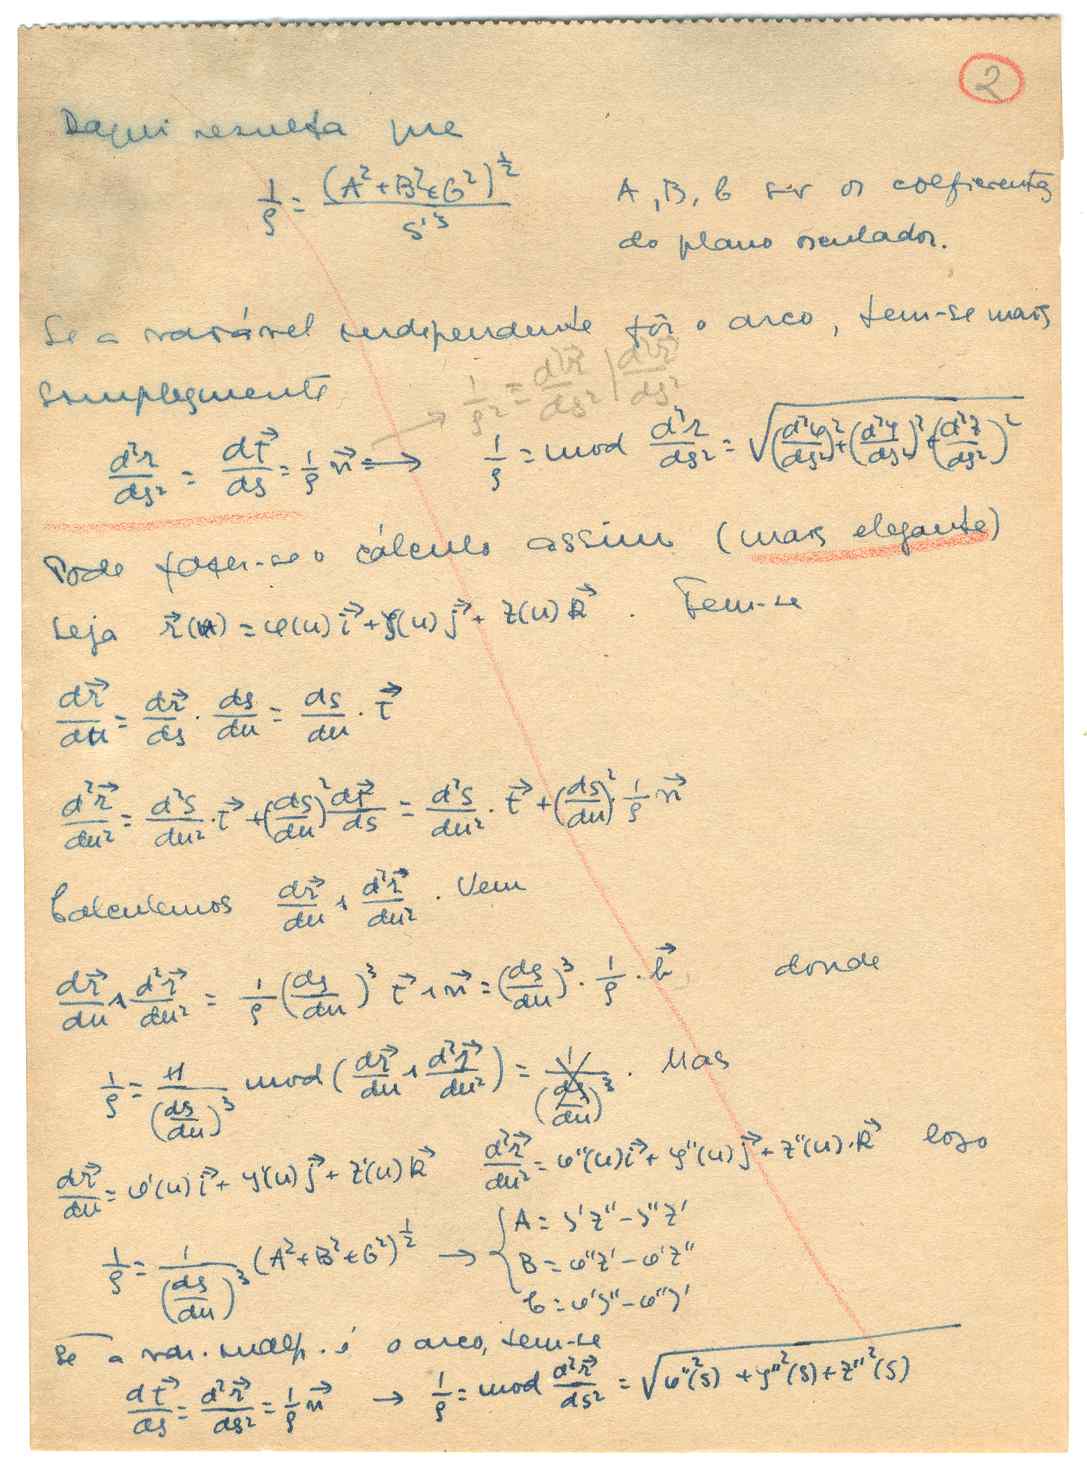 2
Daqui resulta que
1/ρ = (A² + B² + C²)^½ / s'³
A, B, C ser os coeficientes
do plano osculador.
Se a variável independente fôr o arco, tem-se mais
simplesmente
→ 1/ρ² = d²r⃗/ds² | d²r⃗/ds²
d²r/ds² = dt⃗/ds = 1/ρ n⃗ → 1/ρ = mod d²r/ds² = √((d²φ/ds²)² + (d²y/ds²)² + (d²z/ds²)²)
Pode fazer-se o cálculo assim (mais elegante)
Seja r⃗(u) = φ(u) i⃗ + ζ(u) j⃗ + z(u) k⃗. Tem-se
dr⃗/du = dr⃗/ds · ds/du = ds/du · t⃗
d²r⃗/du² = d²s/du² · t⃗ + (ds/du)² dt⃗/ds = d²s/du² · t⃗ + (ds/du)² · 1/ρ n⃗
Calculemos dr⃗/du ∧ d²r⃗/du². Vem
dr⃗/du ∧ d²r⃗/du² = 1/ρ (ds/du)³ t⃗ ∧ n⃗ = (ds/du)³ · 1/ρ · b⃗, donde
1/ρ = 1/(ds/du)³ mod (dr⃗/du ∧ d²r⃗/du²) = 1/(ds/du)³. Mas
dr⃗/du = φ'(u) i⃗ + ζ'(u) j⃗ + z'(u) k⃗ d²r⃗/du² = φ''(u) i⃗ + ζ''(u) j⃗ + z''(u) · k⃗ logo
1/ρ = 1/(ds/du)³ (A² + B² + C²)^½ → { A = ζ'z'' − ζ''z'
B = φ''z' − φ'z''
C = φ'ζ'' − φ''ζ'
Se a var. indep. é o arco, tem-se
dt⃗/ds = d²r⃗/ds² = 1/ρ n⃗ → 1/ρ = mod d²r⃗/ds² = √(φ''²(s) + ζ''²(s) + z''²(s))